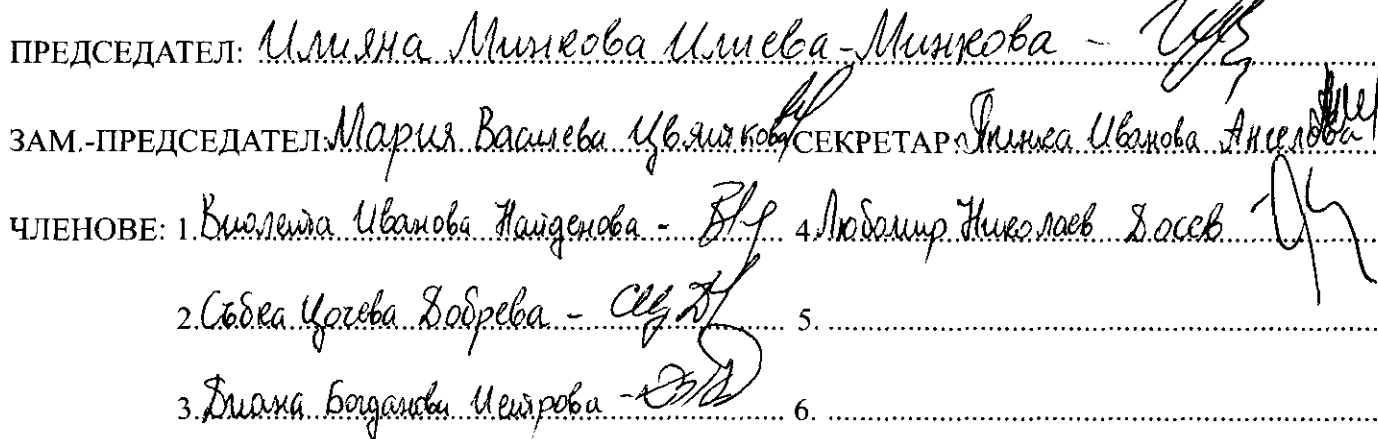 ПРЕДСЕДАТЕЛ: Илияна Минкова Илиева-Минкова -
ЗАМ.-ПРЕДСЕДАТЕЛ: Мария Василева СЕКРЕТАР: Иванова Ангелова
ЧЛЕНОВЕ: 1. Виолета Иванова Найденова - 4. Любомир Николаев Досев -
2. Събка Цочева Добрева - 5.
3. Диана Богданова Петрова - 6.